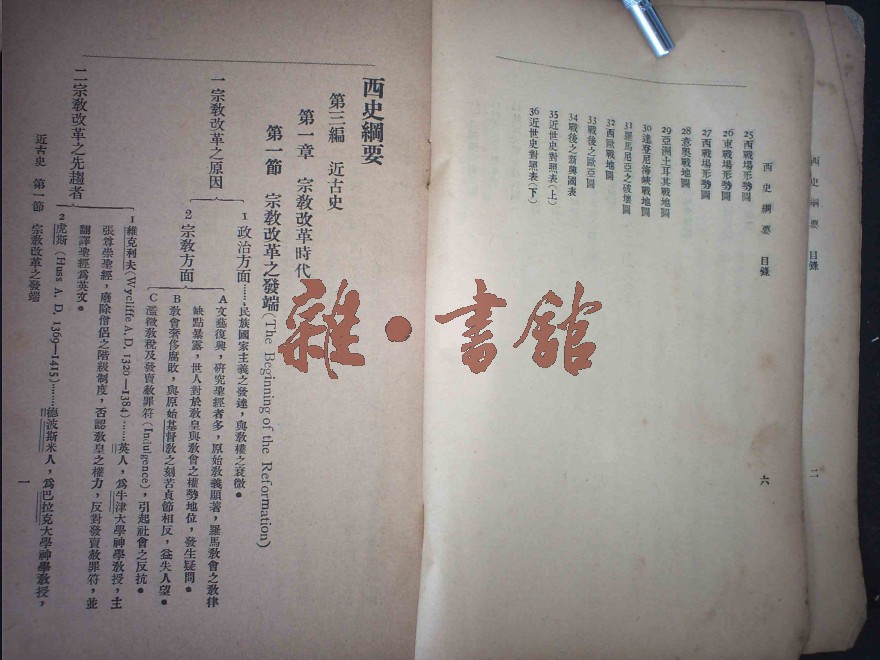 西史綱要 目錄 二
西史綱要 目錄 六
25西戰場形勢圖
26東戰場形勢圖
27西戰場形勢圖
28意奧戰地圖
29亞洲土耳其戰地圖
30達達尼海峽戰地圖
31羅馬尼亞之破壞圖
32西歐戰地圖
33戰後之歐亞圖
34戰後之新興國表
35近世史對照表(上)
36近世史對照表(下)
西史綱要
第三編 近古史
第一章 宗敎改革時代
第一節 宗敎改革之發端(The Beginning of the Reformation)
一 宗敎改革之原因
1 政治方面……民族國家主義之發達,與敎權之衰微。
2 宗敎方面
A 文藝復興,硏究聖經者多,原始敎義顯著,羅馬敎會之敎律
缺點暴露,世人對於敎皇與敎會之權勢地位,發生疑問。
B 敎會奢侈腐敗,與原始基督敎之刻苦貞節相反,益失人望。
C 濫徵敎稅及發賣赦罪符(Indulgence),引起社會之反抗。
二 宗敎改革之先趨者
1 維克利夫(Wycliffe A. D. 1320—1384)……英人,爲牛津大學神學敎授,主
張尊崇聖經,廢除僧侶之階級制度,否認敎皇之權力,反對發賣赦罪符,並
翻譯聖經爲英文。
2 虎斯(Huss A. D. 1369—1415)……德波斯米人,爲巴拉克大學神學敎授,
近古史 第一節 宗敎改革之發端 一
雜·書館